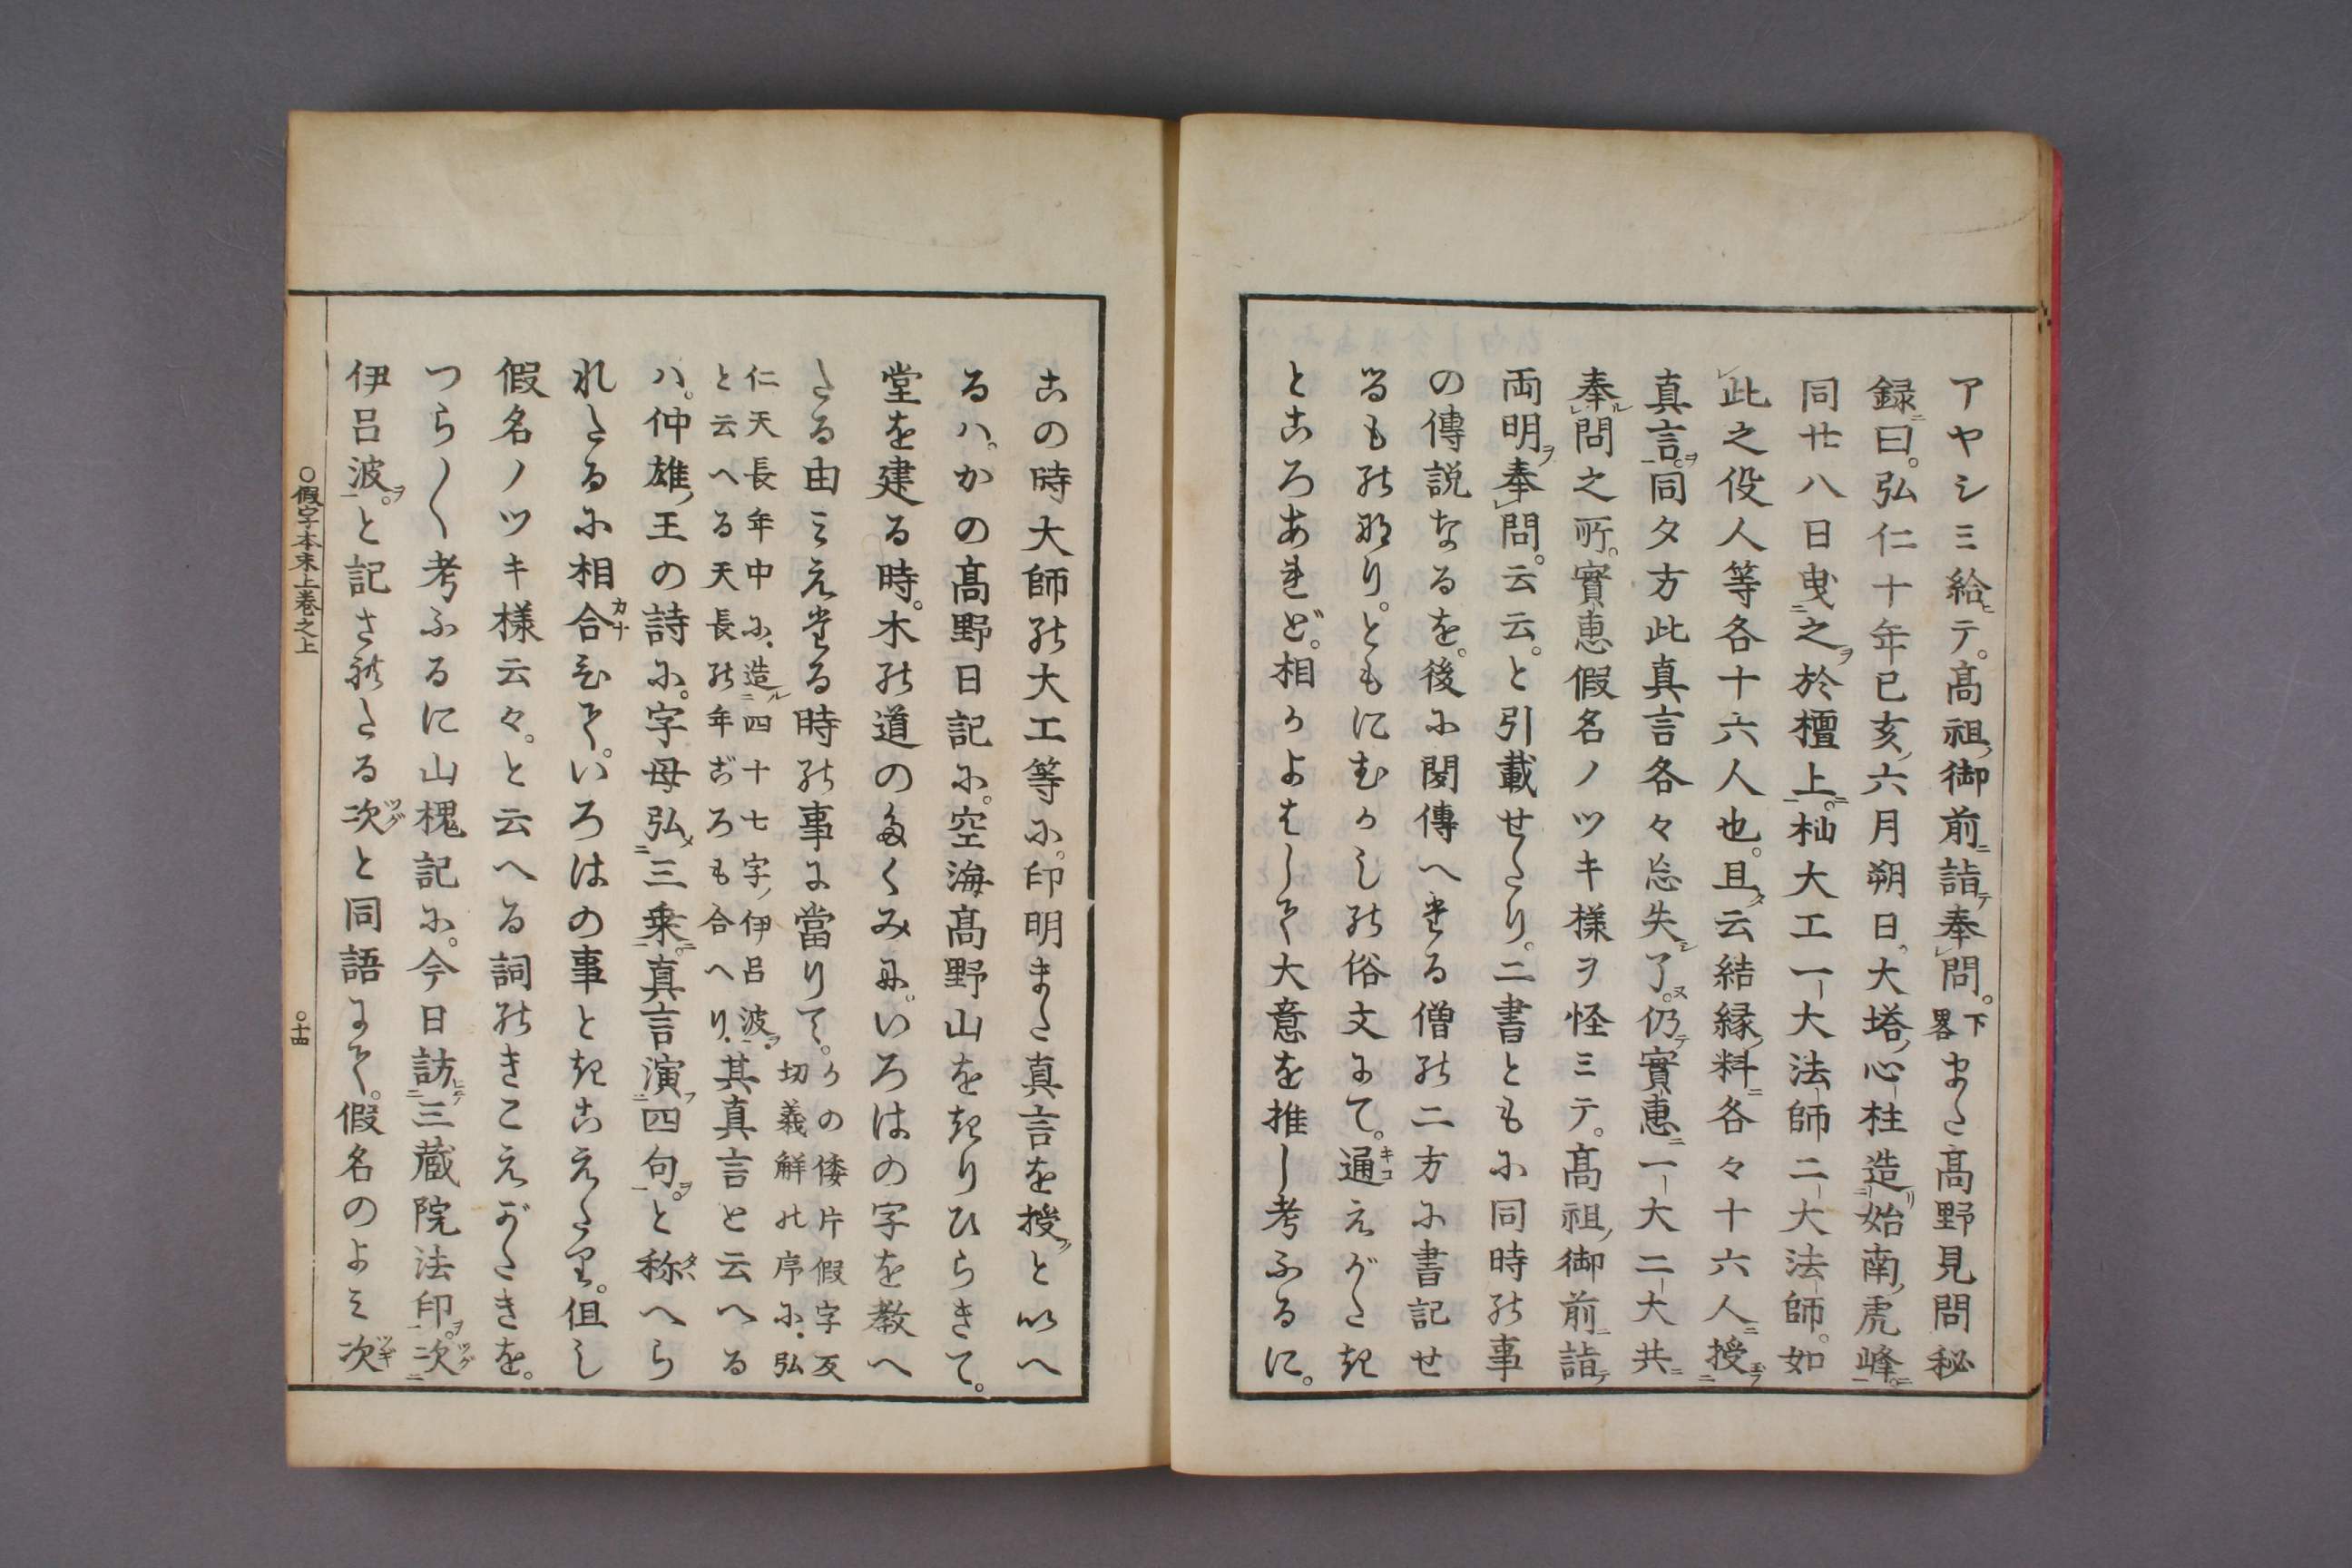 アヤシミ給ニテ。髙祖ノ御前ニ詣テ奉レ問。下畧また髙野見聞秘
録ニ曰。弘仁十年己亥ノ六月朔日。大塔ノ心柱造リ始南ノ虎峰ニ。
同廿八日曳之ヲ於檀上ニ。杣大工一大法師二大法師。如
此之役人等各十六人也。且タ云結縁ノ料ニ各々十六人ニ授玉フ
真言ヲ。同夕方此真言各々忘失シ了ヌ。仍テ實惠ニ一大二大共ニ
奉ル問之所。實惠假名ノツキ様ヲ怪ミテ。髙祖ノ御前ニ詣テ
両明ヲ奉レ問。云云。と引載せたり。二書ともに同時の事
の傳説なるを。後に聞傳へたる僧の二方に書記せ
るもの那り。ともにむかしの俗文にて。通えがたき
ところあれど。相かよはして大意を推し考ふるに。
この時大師の大工等に。印明また真言を授ノといへ
るハ。かの髙野日記に。空海髙野山をきりひらきて。
堂を建る時。木の道のたくみに。いろはの字を教へ
たる由みえたる時の事に當りて。かの倭片假字反
切義解の序に。弘
仁天長年中に。造ル四十七字ノ伊呂波ヲ。
と云へる天長の年ごろも合へり。其真言と云へる
ハ。仲雄ノ王の詩に。字母弘メ三乗ニ。真言演フ四句ヲ。と称タヽへら
れたるに相合カナひて。いろはの事ときこえたり。但し
假名ノツキ様云々。と云へる詞のきこえがたきを。
つら〳〵考ふるに山槐記に。今日訪ヒテ三蔵院法印ヲ。次ツグ
伊呂波ヲ。と記されたる次ツグと同語にて。假名のよみ次ツギ
○假字本末上巻之上
○十四